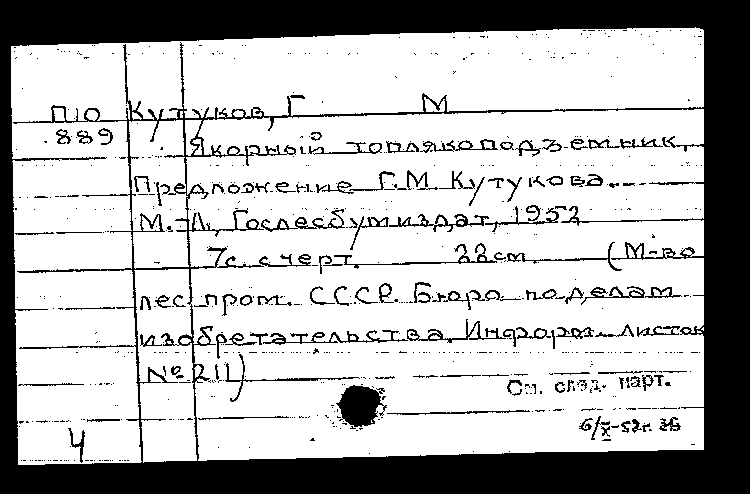 П10 Кутуков, Г М
889 Якорный топлякоподъемник.
Предложение Г.М. Кутукова.
М.-Л., Гослесбумиздат, 1952
7с. с черт. 22см. (М-во
лес. пром. СССР. Бюро по делам
изобретательства. Информ. листок
№ 211)
См. след. карт.
4 6/X-52г.